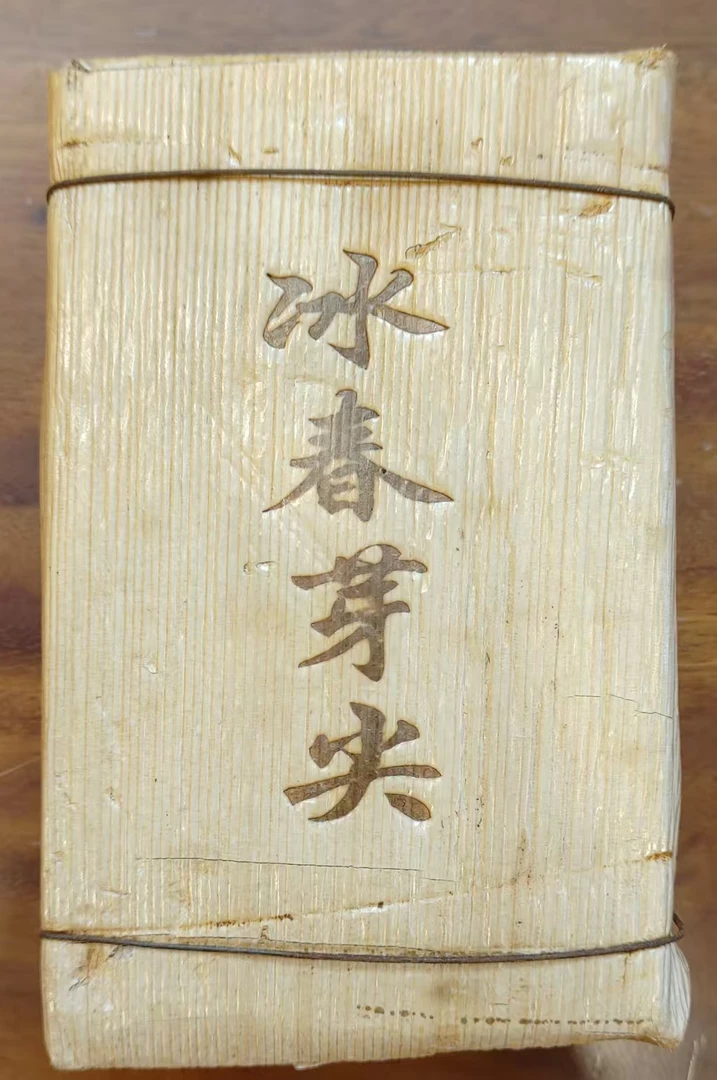 冰春芽尖